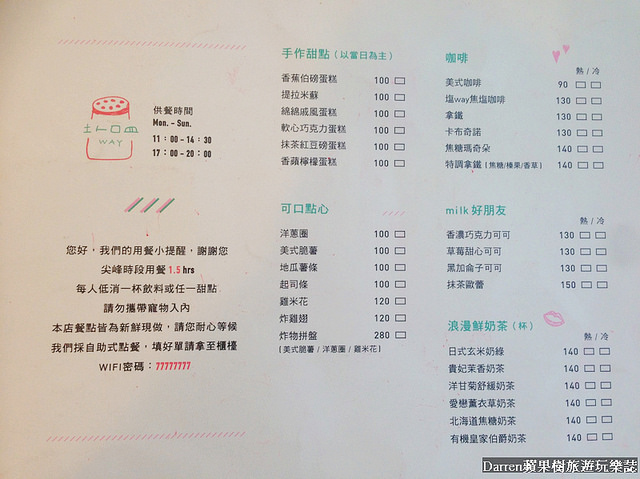 WAY
供餐時間
Mon. - Sun.
11:00-14:30
17:00-20:00
您好,我們的用餐小提醒,謝謝您
尖峰時段用餐1.5 hrs
每人低消一杯飲料或任一甜點
請勿攜帶寵物入內
本店餐點皆為新鮮現做,請您耐心等候
我們採自助式點餐,填好單請拿至櫃檯
WIFI密碼:77777777
手作甜點(以當日為主)
香蕉伯磅蛋糕 100
提拉米蘇 100
綿綿戚風蛋糕 100
軟心巧克力蛋糕 100
抹茶紅豆磅蛋糕 100
香蘋檸檬蛋糕 100
可口點心
洋蔥圈 100
美式脆薯 100
地瓜薯條 100
起司條 100
雞米花 120
炸雞翅 120
炸物拼盤 280
(美式脆薯/洋蔥圈/雞米花)
咖啡
熱/冷
美式咖啡 90
塩way焦塩咖啡 130
拿鐵 130
卡布奇諾 130
焦糖瑪奇朵 140
特調拿鐵(焦糖/榛果/香草) 140
milk好朋友
熱/冷
香濃巧克力可可 130
草莓甜心可可 130
黑加侖子可可 130
抹茶歐蕾 150
浪漫鮮奶茶(杯)
熱/冷
日式玄米奶綠 140
貴妃茉香奶茶 140
洋甘菊舒緩奶茶 140
愛戀薰衣草奶茶 140
北海道焦糖奶茶 140
有機皇家伯爵奶茶 140
Darren蘋果樹旅遊玩樂誌